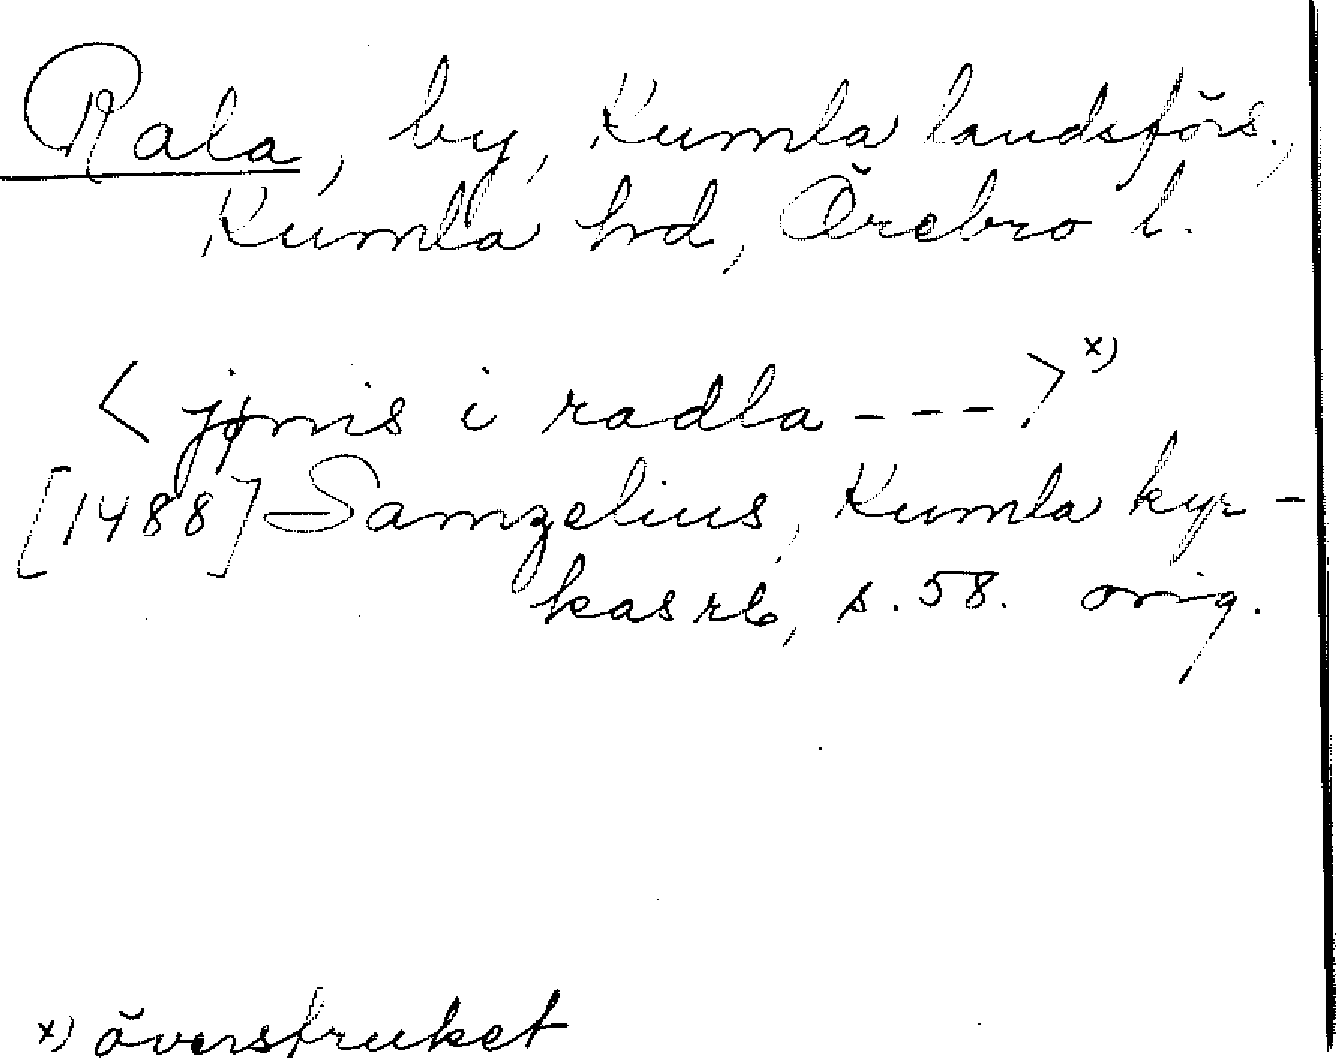 Rala, by, Kumla landsförs.,
Kumla hd, Örebro l.
< jønis i radla --- > x)
[1488] Samzelius, Kumla kyr-
kas rb, s. 58. orig.
x) överstruket